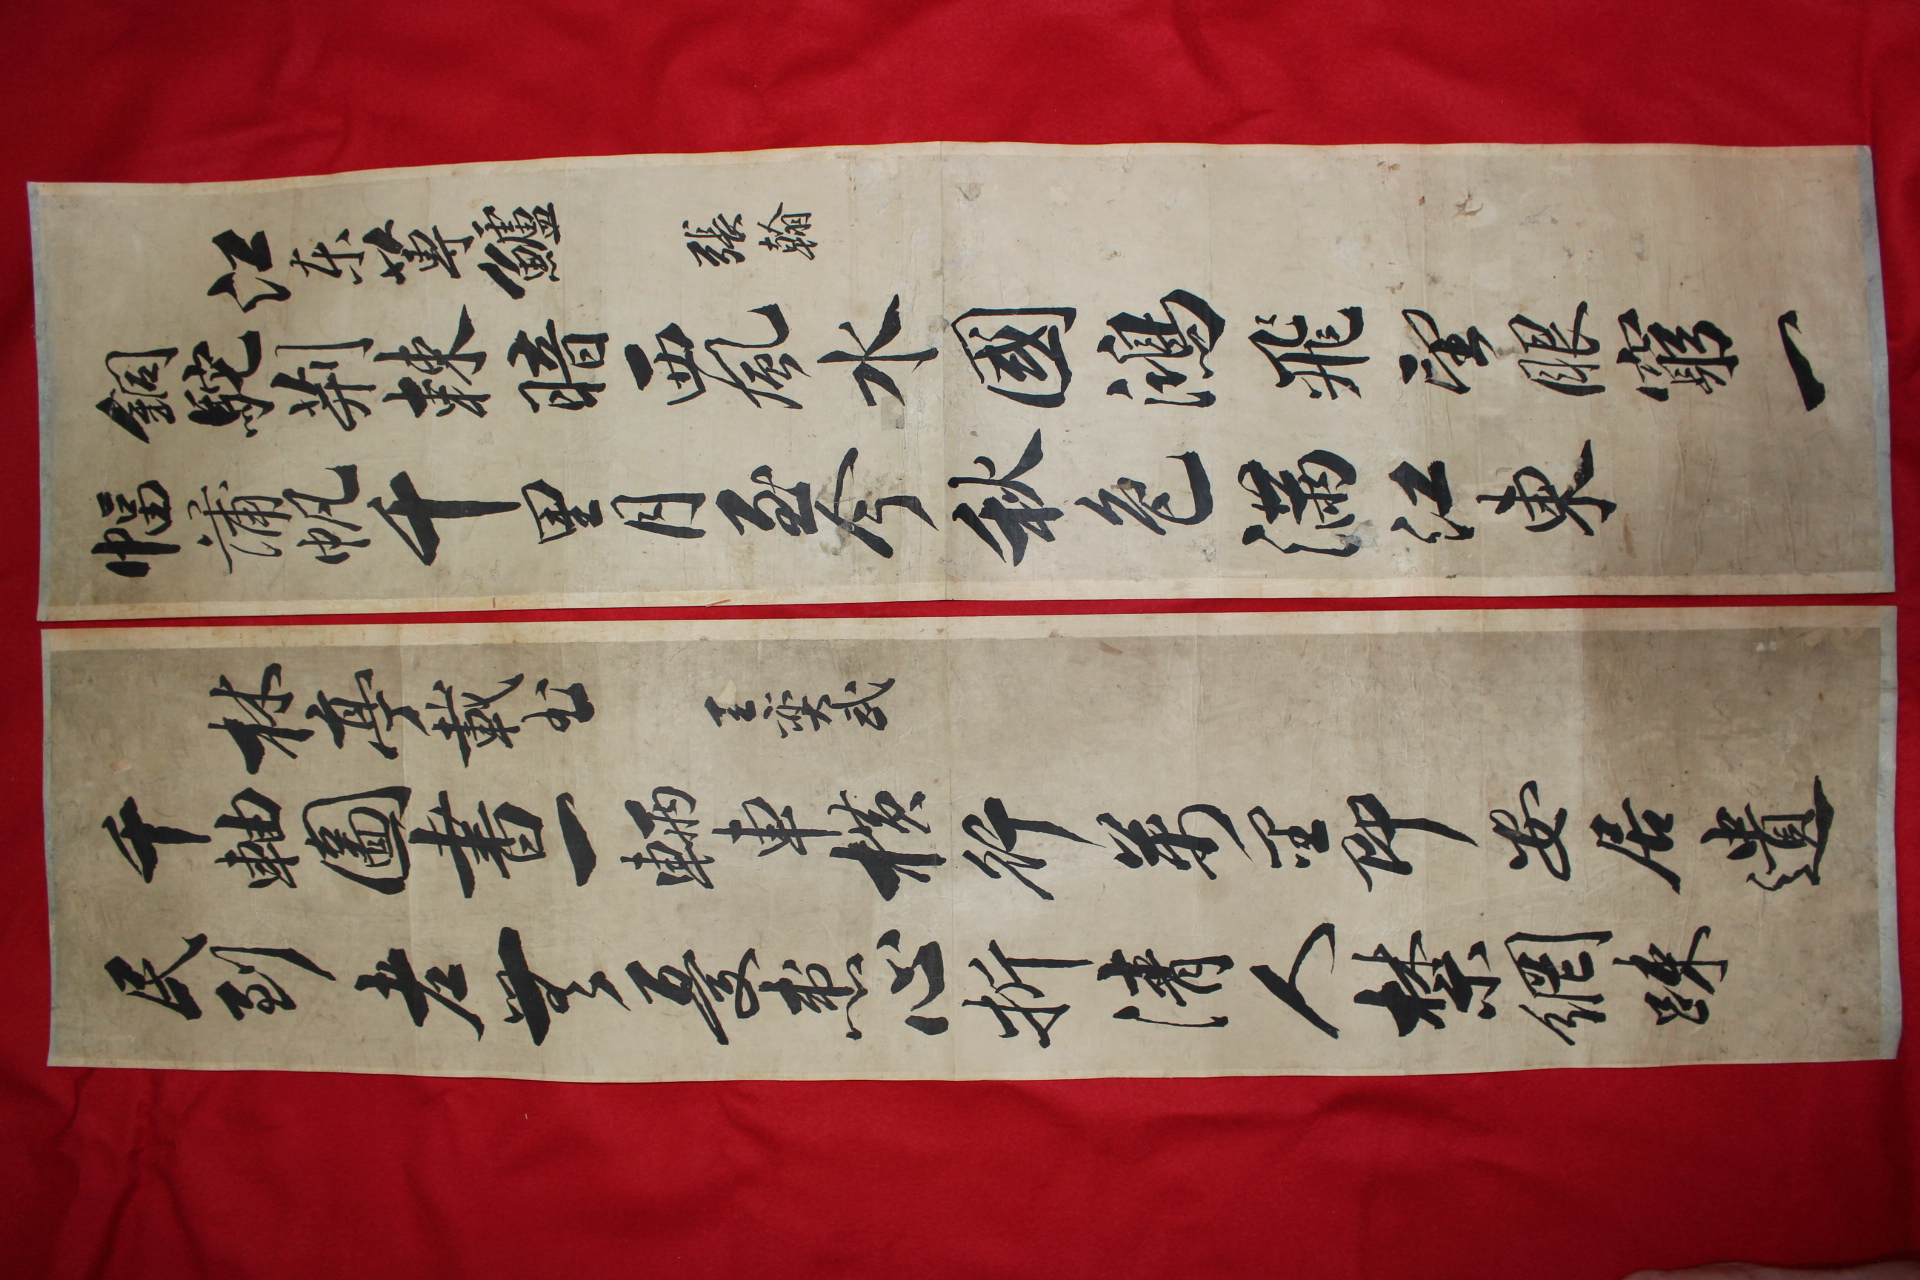 江东蓴鱸 張翰
銅駝荊棘暗西風水國鴻飛望眼窮一
幅蒲帆千里月至今秋色滿江東
林亭載书 王奕武
千軸圖書一輛車橫行萬里即安居遺
民到老無憂患心折清人禁網踈